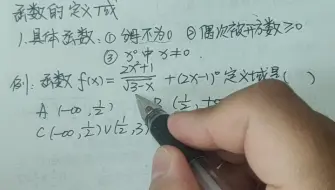 函数的定义域
1.具体函数:①分母不为0 ②偶次被开方数≥0
③x⁰中x≠0.
例:函数f(x)=2x²+1/√3-x+(2x-1)⁰定义域是(
A (-∞,1/2) B (1/2,+∞
C (-∞,1/2)∪(1/2,3)